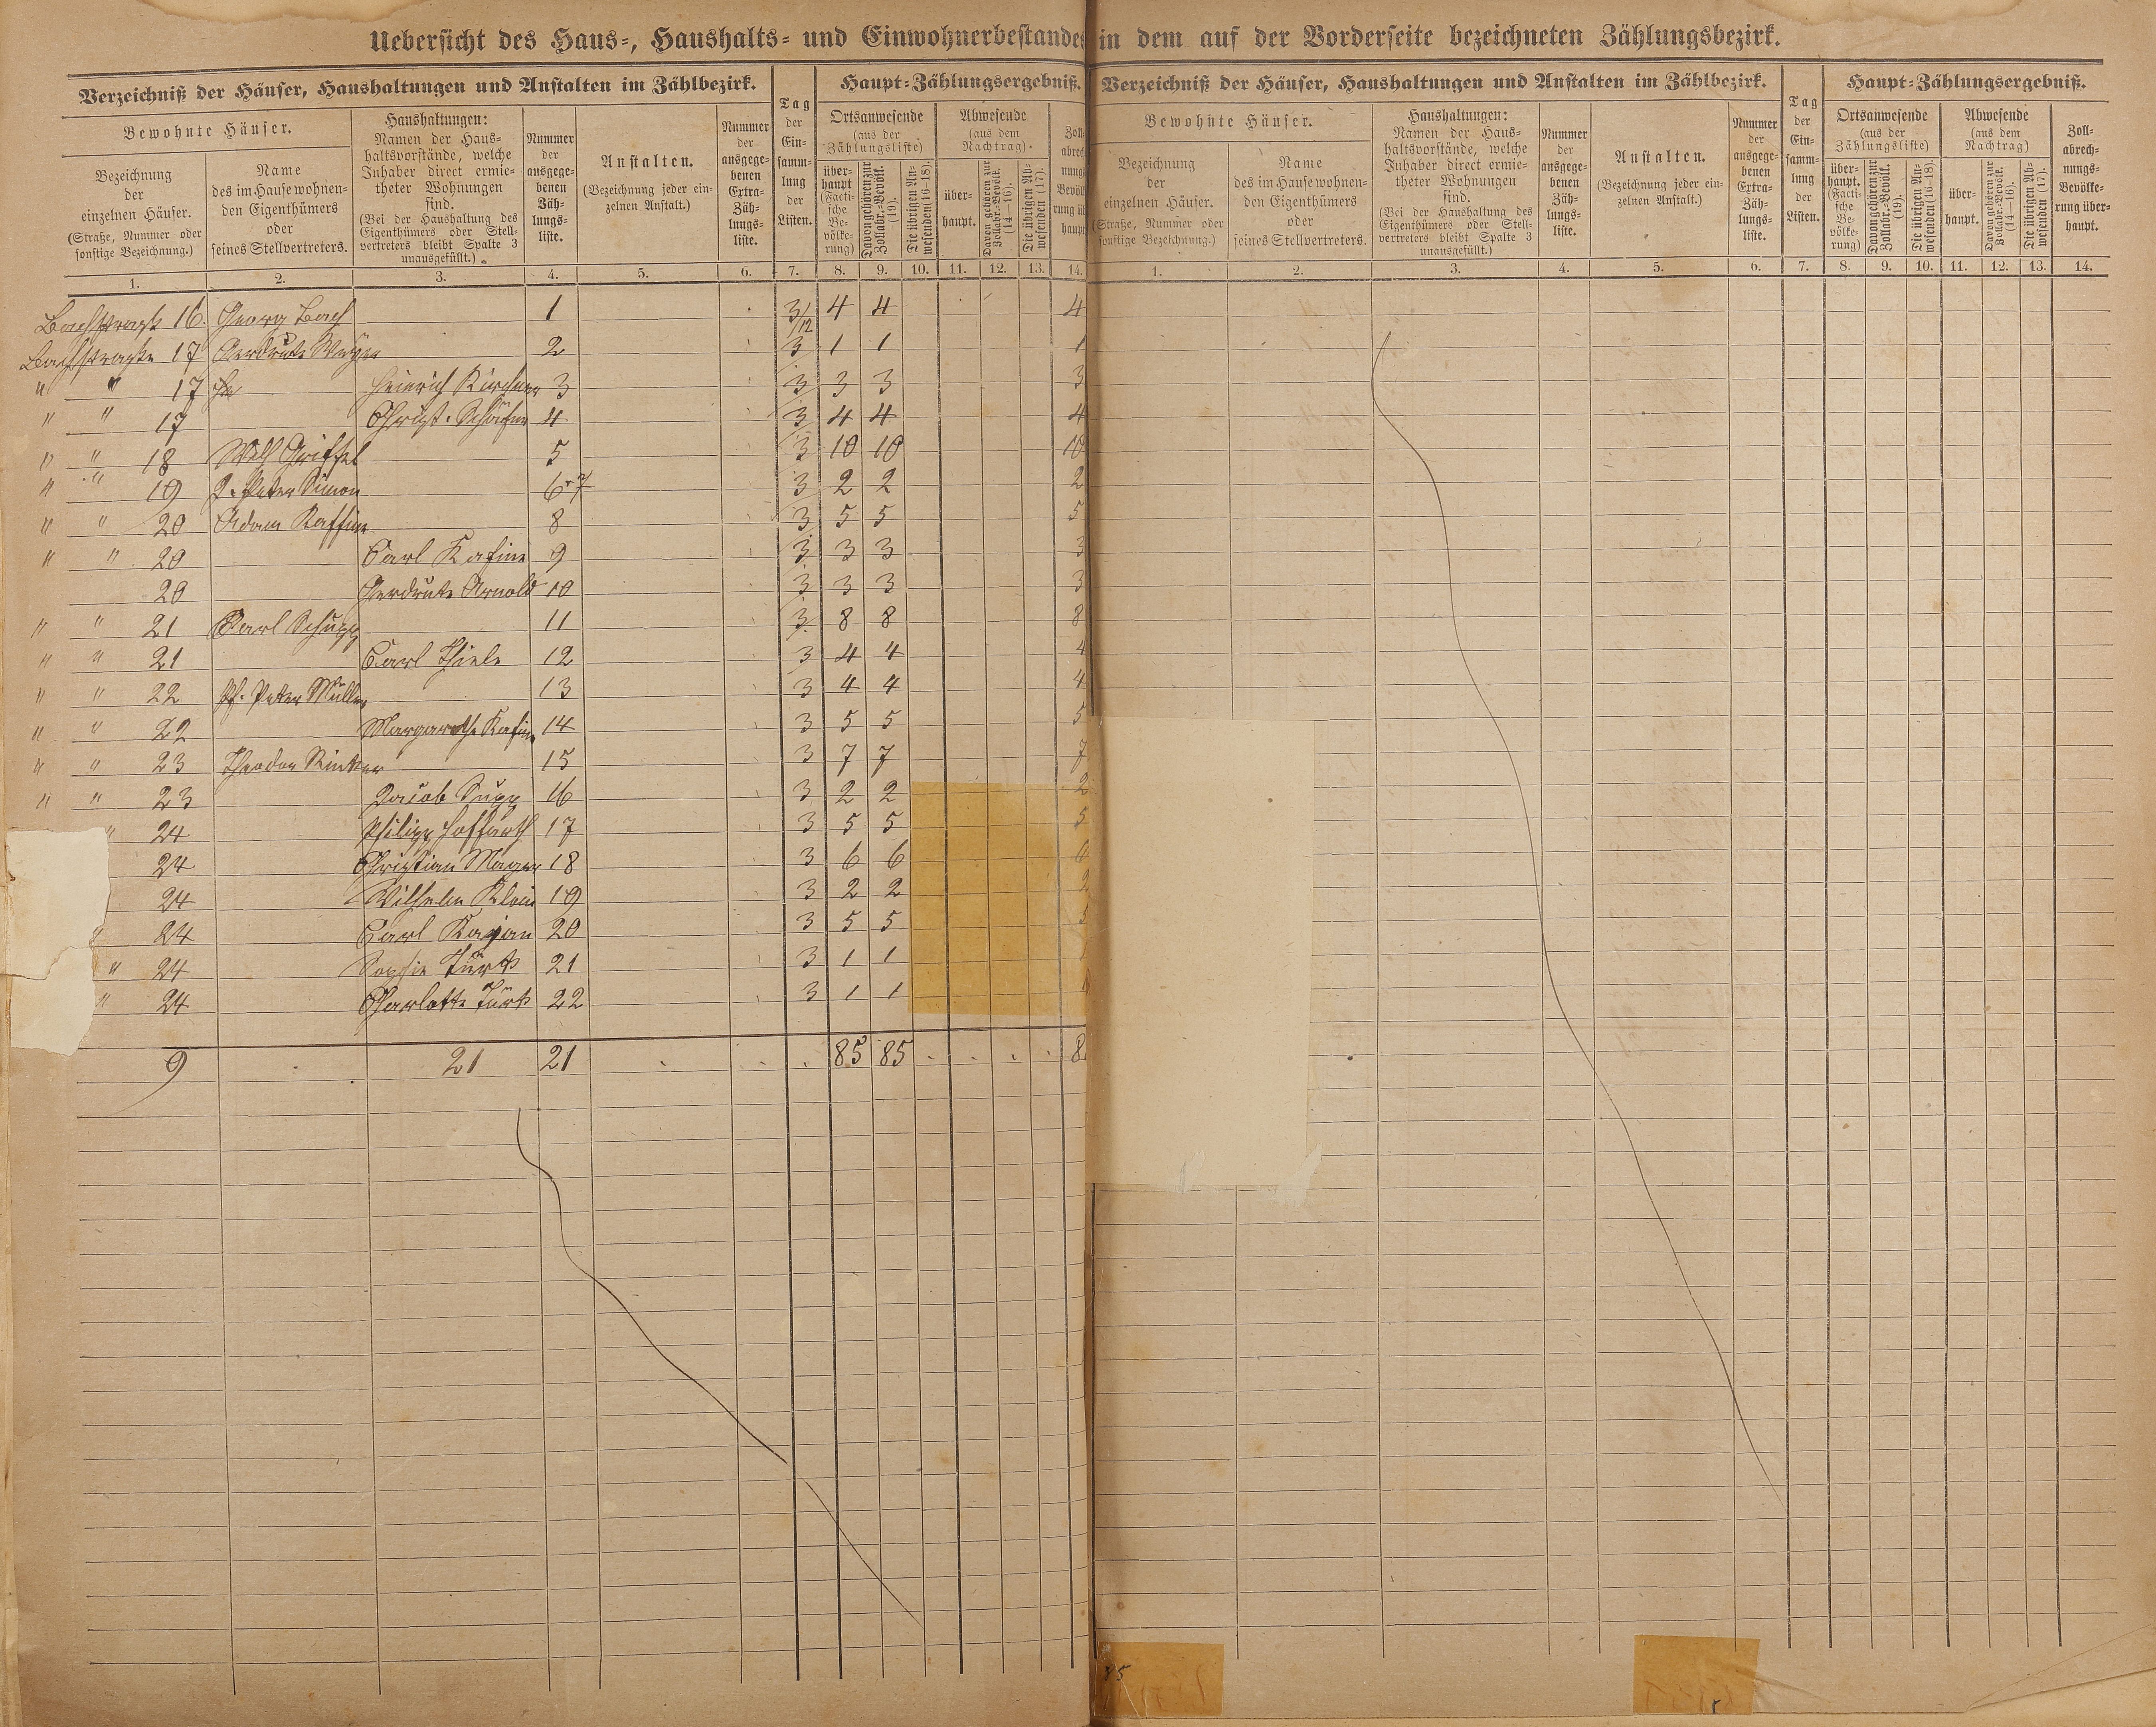 Uebersicht des Haus-, Haushalts- und Einwohnerbestandes in dem auf der Vorderseite bezeichneten Zählungsbezirk.
Verzeichniß der Häuser, Haushaltungen und Anstalten im Zählbezirk.
Tag der Ein- samm- lung der Listen.
Haupt-Zählungsergebniß.
Bewohnte Häuser.
Bezeichnung der einzelnen Häuser. (Straße, Nummer oder sonstige Bezeichnung.)
Name des im Hause wohnen- den Eigenthümers oder seines Stellvertreters.
Haushaltungen: Namen der Haus- haltsvorstände, welche Inhaber direct ermie- theter Wohnungen sind. (Bei der Haushaltung des Eigenthümers oder Stell- vertreters bleibt Spalte 3 unausgefüllt.)
Nummer der ausgege- benen Zäh- lungs- liste.
Anstalten. (Bezeichnung jeder ein- zelnen Anstalt.)
Nummer der ausgege- benen Extra- Zäh- lungs- liste.
Ortsanwesende (aus der Zählungsliste)
über- haupt (Facti- sche Be- völke- rung)
Davon gehören zur Zollabr.-Bevölk. (19).
Die übrigen An- wesenden (16–18).
Abwesende (aus dem Nachtrag).
über- haupt.
Davon gehören zur Zollabr.-Bevölk. (14–16).
Die übrigen Ab- wesenden (17).
1. 2. 3. 4. 5. 6. 7. 8. 9. 10. 11. 12. 13. 14.
Bachstraße 16. Georg Bach 1 3/12 4 4 4
Bachstraße 17 Gerdrute 2 3 1 1 1
" " 17 Heinrich Kirchner 3 3 3 3 3
" " 17 Christ. Schäfer 4 3 4 4 4
" " 18 Wilh Griffel 5 3 10 10 10
" " 19 J. Peter Simon 6+7 3 2 2 2
" " 20 Adam Kaffine 8 3 5 5 5
" " 20 Carl Kafine 9 3 3 3 3
20 Gerdrute Arnold 10 3 3 3 3
" " 21 Carl Schupp 11 3 8 8 8
" " 21 Carl Thiele 12 3 4 4 4
" " 22 Ph. Peter Müller 13 3 4 4 4
" " 22 Margarethe Kafine 14 3 5 5 5
" " 23 Theodor Rinker 15 3 7 7 7
" " 23 Jacob Supp 16 3 2 2 2
" 24 Philipp Hoffarth 17 3 5 5 5
24 Christian Mager 18 3 6 6 6
24 Wilhelm Klein 19 3 2 2 2
24 Carl 20 3 5 5 5
" 24 Sophie Türk 21 3 1 1
" 24 Charlotte Türk 22 3 1 1
9 . 21 21 . . . 85 85 . . . . 8
Verzeichniß der Häuser, Haushaltungen und Anstalten im Zählbezirk.
Tag der Ein- samm- lung der Listen.
Haupt-Zählungsergebniß.
Bewohnte Häuser.
Bezeichnung der einzelnen Häuser. (Straße, Nummer oder sonstige Bezeichnung.)
Name des im Hause wohnen- den Eigenthümers oder seines Stellvertreters.
Haushaltungen: Namen der Haus- haltsvorstände, welche Inhaber direct ermie- theter Wohnungen sind. (Bei der Haushaltung des Eigenthümers oder Stell- vertreters bleibt Spalte 3 unausgefüllt.)
Nummer der ausgege- benen Zäh- lungs- liste.
Anstalten. (Bezeichnung jeder ein- zelnen Anstalt.)
Nummer der ausgege- benen Extra- Zäh- lungs- liste.
Ortsanwesende (aus der Zählungsliste)
über- haupt. (Facti- sche Be- völke- rung)
Davon gehören zur Zollabr.-Bevölk. (19).
Die übrigen An- wesenden (16–18).
Abwesende (aus dem Nachtrag)
über- haupt.
Davon gehören zur Zollabr.-Bevölk. (14–16).
Die übrigen Ab- wesenden (17).
Zoll- abrech- nungs- Bevölke- rung über- haupt.
1. 2. 3. 4. 5. 6. 7. 8. 9. 10. 11. 12. 13. 14.